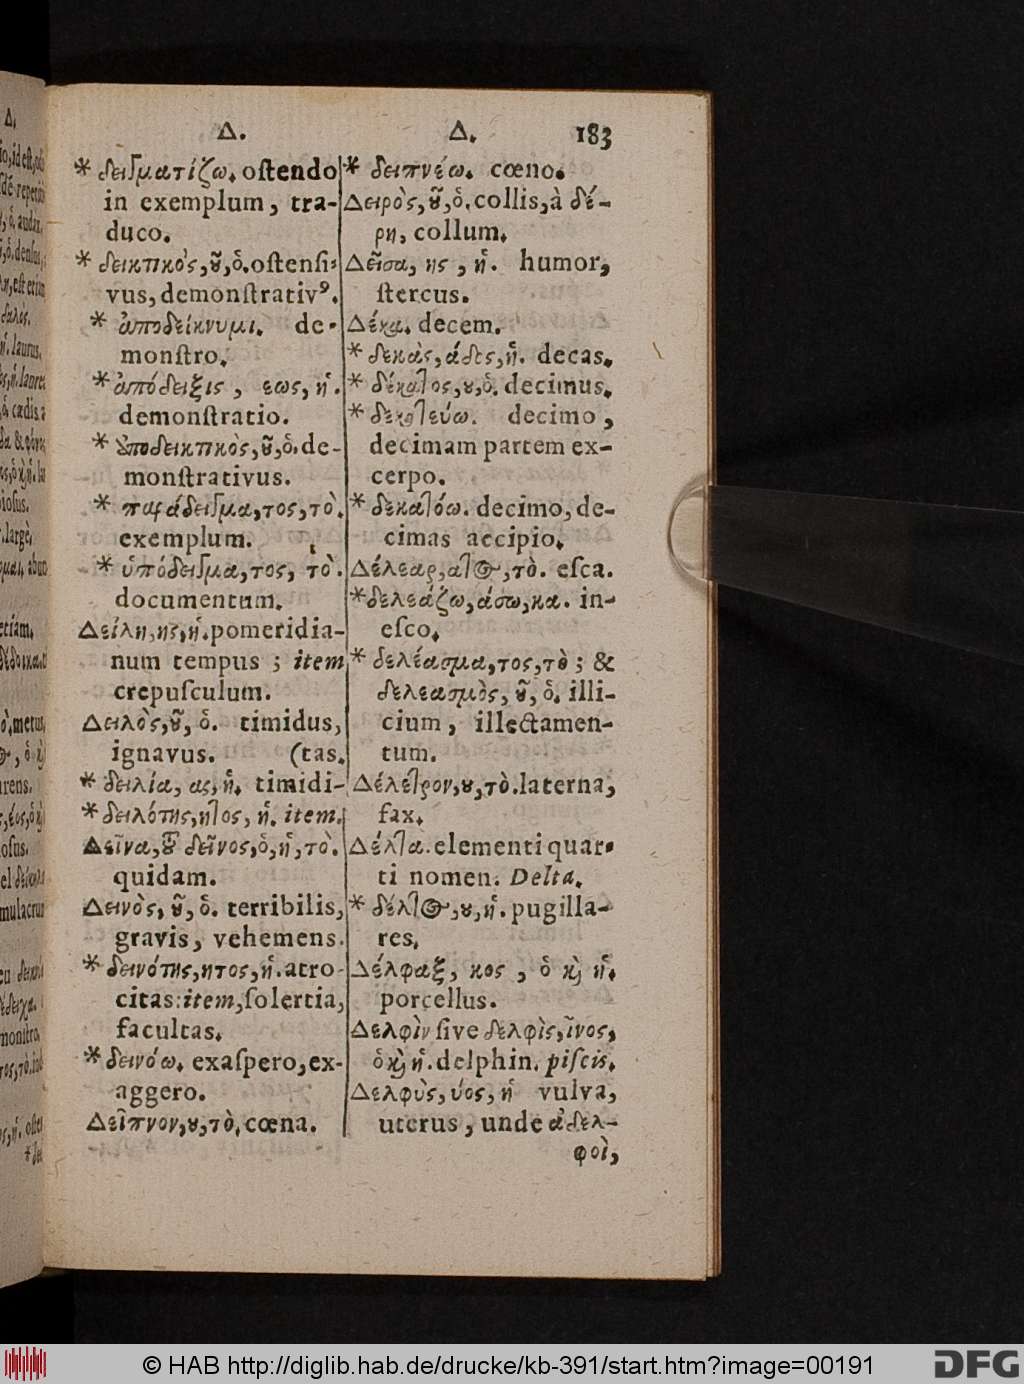 Δ.
* δειγματίζω. oſtendo
in exemplum, tra-
duco.
* δεικτικὸς, ȣ͂, ὁ. oſtenſi-
vus, demonſtrativꝰ.
* ἀποδείκνυμι. de-
monſtro.
* ἀπόδειξις, εως, ἡ.
demonſtratio.
* ἀποδεικτικὸς, ȣ͂, ὁ. de-
monſtrativus.
* παράδειγμα, τος, τὸ.
exemplum.
* ὑπόδειγμα, τος, τὸ.
documentum.
Δείλη, ης, ἡ. pomeridia-
num tempus ; item
crepuſculum.
Δειλὸς, ȣ͂, ὁ. timidus,
ignavus. (tas.
* δειλία, ας, ἡ. timidi-
* δειλότης, ητος, ἡ. item.
Δεῖνα, τȣ͂ δεῖνος, ὁ, ἡ, τὸ.
quidam.
Δεινὸς, ȣ͂, ὁ. terribilis,
gravis, vehemens.
* δεινότης, ητος, ἡ. atro-
citas: item, ſolertia,
facultas.
* δεινόω. exaſpero, ex-
aggero.
Δεῖπνον, ȣ, τὸ. cœna.
Δ. 183
* δειπνέω. cœno.
Δειρὸς, ȣ͂, ὁ. collis, à δέ-
ρη, collum.
Δεῖσα, ης, ἡ. humor,
ſtercus.
Δέκα. decem.
* δεκὰς, άδες, ἡ. decas.
* δέκατος, ȣ, ὁ. decimus.
* δεκατεύω. decimo,
decimam partem ex-
cerpo.
* δεκατόω. decimo, de-
cimas accipio.
Δέλεαρ, ατος, τὸ. eſca.
* δελεάζω, άσω, κα. in-
eſco.
* δελέασμα, τος, τὸ ; &
δελεασμὸς, ȣ͂, ὁ. illi-
cium, illectamen-
tum.
Δέλετρον, ȣ, τὸ. laterna,
fax.
Δέλτα. elementi quar-
ti nomen. Delta.
* δέλτος, ȣ, ἡ. pugilla-
res.
Δέλφαξ, κος, ὁ ϗ ἡ.
porcellus.
Δελφὶν ſive δελφὶς, ῖνος,
ὁ ϗ ἡ. delphin. piſcis.
Δελφὺς, ύος, ἡ vulva,
uterus, unde ἀδελ-
φοὶ,
© HAB http://diglib.hab.de/drucke/kb-391/start.htm?image=00191
DFG